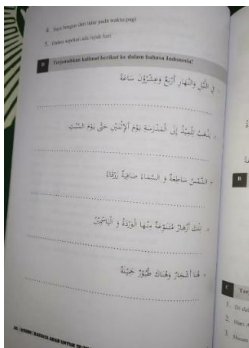 4. Saya bangun dari tidur pada waktu pagi
5. Dalam sepekan ada tujuh hari
B Terjemahkan kalimat berikut ke dalam bahasa Indonesia!
فِي اللَّيْلِ وَالنَّهَارِ أَرْبَعٌ وَعِشْرُوْنَ سَاعَةً
إِلَى الْمَدْرَسَةِ يَوْمَ الْإِثْنَيْنِ حَتَّى يَوْمَ السَّبْتِ
الشَّمْسُ سَاطِعَةٌ وَ السَّمَاءُ صَافِيَةٌ زَرْقَاءُ
أَزْهَارٌ مُتَنَوِّعَةٌ مِنْهَا الْوَرْدَةُ وَ الْيَاسَمِيْنُ
هُنَا أَشْجَارٌ وَهُنَاكَ طُيُوْرٌ جَمِيْلَةٌ